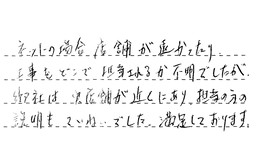 ネットの場合、店舗が遠かったり
工事をどこで担当されるか不明でしたが、
御社は実店舗が近くにあり、担当の方の
説明もていねいでした。満足しております。